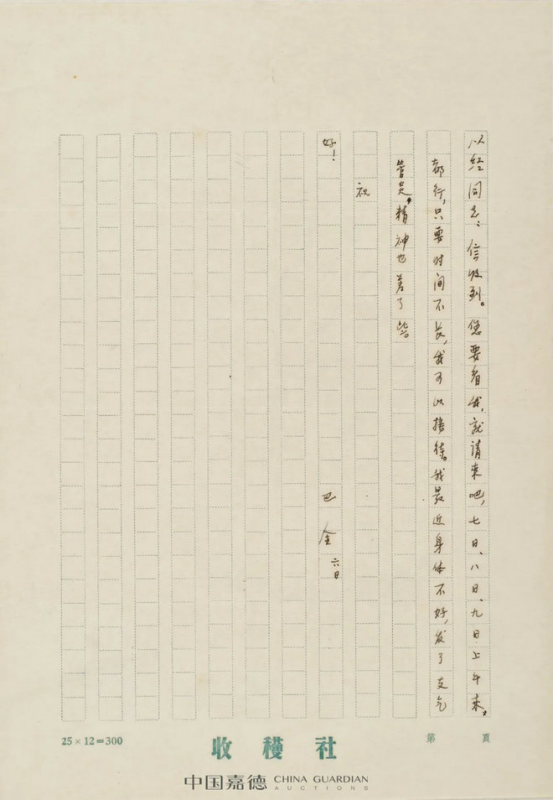 以经同志：信收到。您要看我，就请来吧，七日、八日、九日上午来，
都行，只要时间不长，我可以接待。我最近身体不好，发了支气
管炎，精神也差了些。
祝
好！
巴金 六日
25×12=300
收穫社
第 頁
中国嘉德 CHINA GUARDIAN
AUCTIONS